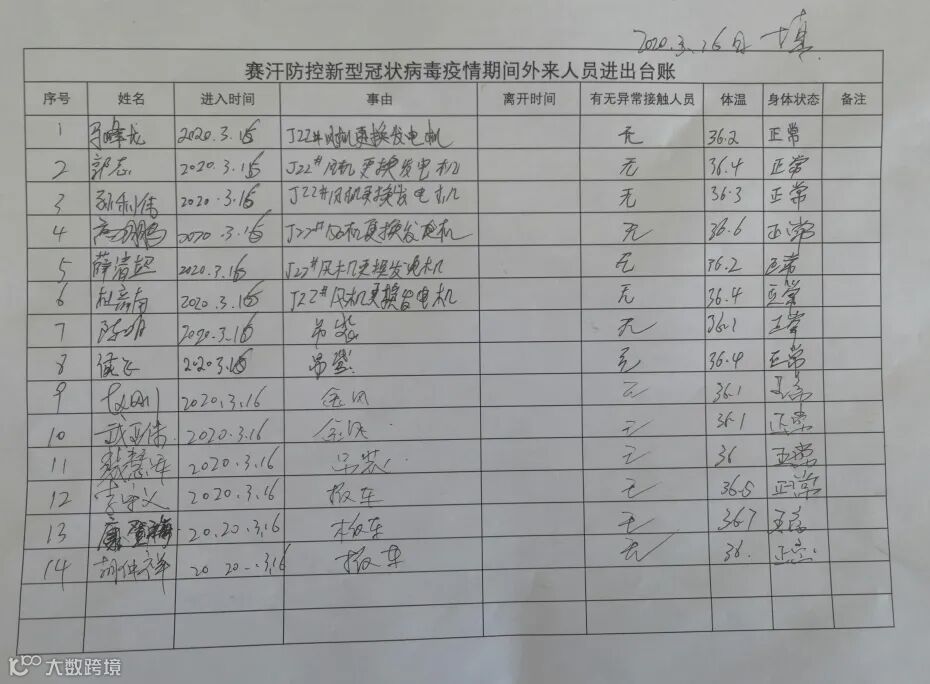 2020.3.16日 填
赛汗防控新型冠状病毒疫情期间外来人员进出台账
序号 姓名 进入时间 事由 离开时间 有无异常接触人员 体温 身体状态 备注
1 马峰龙 2020.3.16 J22#风机更换发电机 无 36.2 正常
2 郭志 2020.3.16 J22#风机更换发电机 无 36.4 正常
3 孙利伟 2020.3.16 J22#风机更换发电机 无 36.3 正常
4 鹏 2020.3.16 J22#风机更换发电机 无 36.6 正常
5 薛清超 2020.3.16 J22#风机更换发电机 无 36.2 正常
6 杜彦南 2020.3.16 J22#风机更换发电机 无 36.4 正常
7 陈明 2020.3.16 吊装 无 36.1 正常
8 侯飞 2020.3.16 吊装 无 36.4 正常
9 2020.3.16 金风 无 36.1 正常
10 武亚伟 2020.3.16 金风 无 36.1 正常
11 2020.3.16 吊装 无 36 正常
12 李守义 2020.3.16 板车 无 36.5 正常
13 康 2020.3.16 板车 无 36.7 正常
14 胡 祥 2020.3.16 板车 无 36. 正常
大数跨境